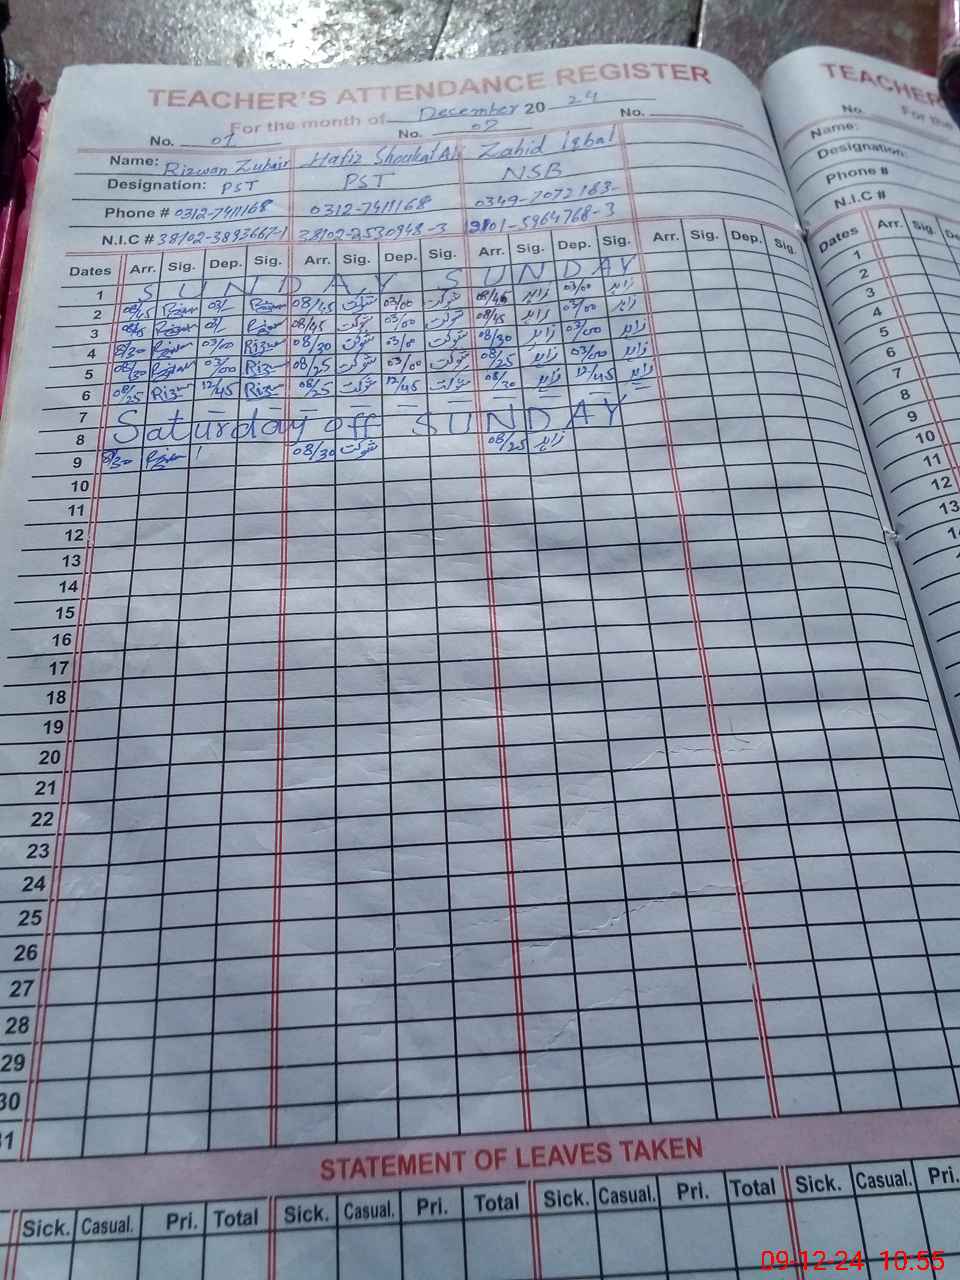 TEACHER'S ATTENDANCE REGISTER
For the month of December 20 24
No. 01 No. 02 No.
Name: Rizwan Zubair Hafiz Shoukat Ali Zahid Iqbal
Designation: PST PST NSB
Phone # 0312-7411168 0312-7411168 0349-7072163
N.I.C # 38102-3893667-1 38102-2530948-3 -5964768-3
Dates Arr. Sig. Dep. Sig. Arr. Sig. Dep. Sig. Arr. Sig. Dep. Sig. Arr. Sig. Dep. Sig.
1 SUNDAY SUNDAY
2 08/45 03/ 08/45 شوکت 03/00 شوکت 08/45 زاہد 03/00 زاہد
3 08/45 شوکت 03/00 شوکت 08/45 زاہد 03/00 زاہد
4 8/30 03/00 Riz 08/30 شوکت 03/00 شوکت 08/30 زاہد 03/00 زاہد
5 08/30 03/00 Riz 08/25 شوکت 03/00 شوکت 08/25 زاہد 03/00 زاہد
6 08/25 Riz 12/45 Riz 08/25 شوکت 12/45 شوکت 08/30 زاہد 12/45 زاہد
7 Saturday off SUNDAY
8
9 8/30 08/30 شوکت 08/25 زاہد
10
11
12
13
14
15
16
17
18
19
20
21
22
23
24
25
26
27
28
29
30
31
STATEMENT OF LEAVES TAKEN
Sick. Casual. Pri. Total Sick. Casual. Pri. Total Sick. Casual. Pri. Total Sick. Casual. Pri.
TEACHER
No. For the
Name:
Designation:
Phone #
N.I.C #
Dates Arr. Sig.
1
2
3
4
5
6
7
8
9
10
11
12
13
09-12-24 10:55